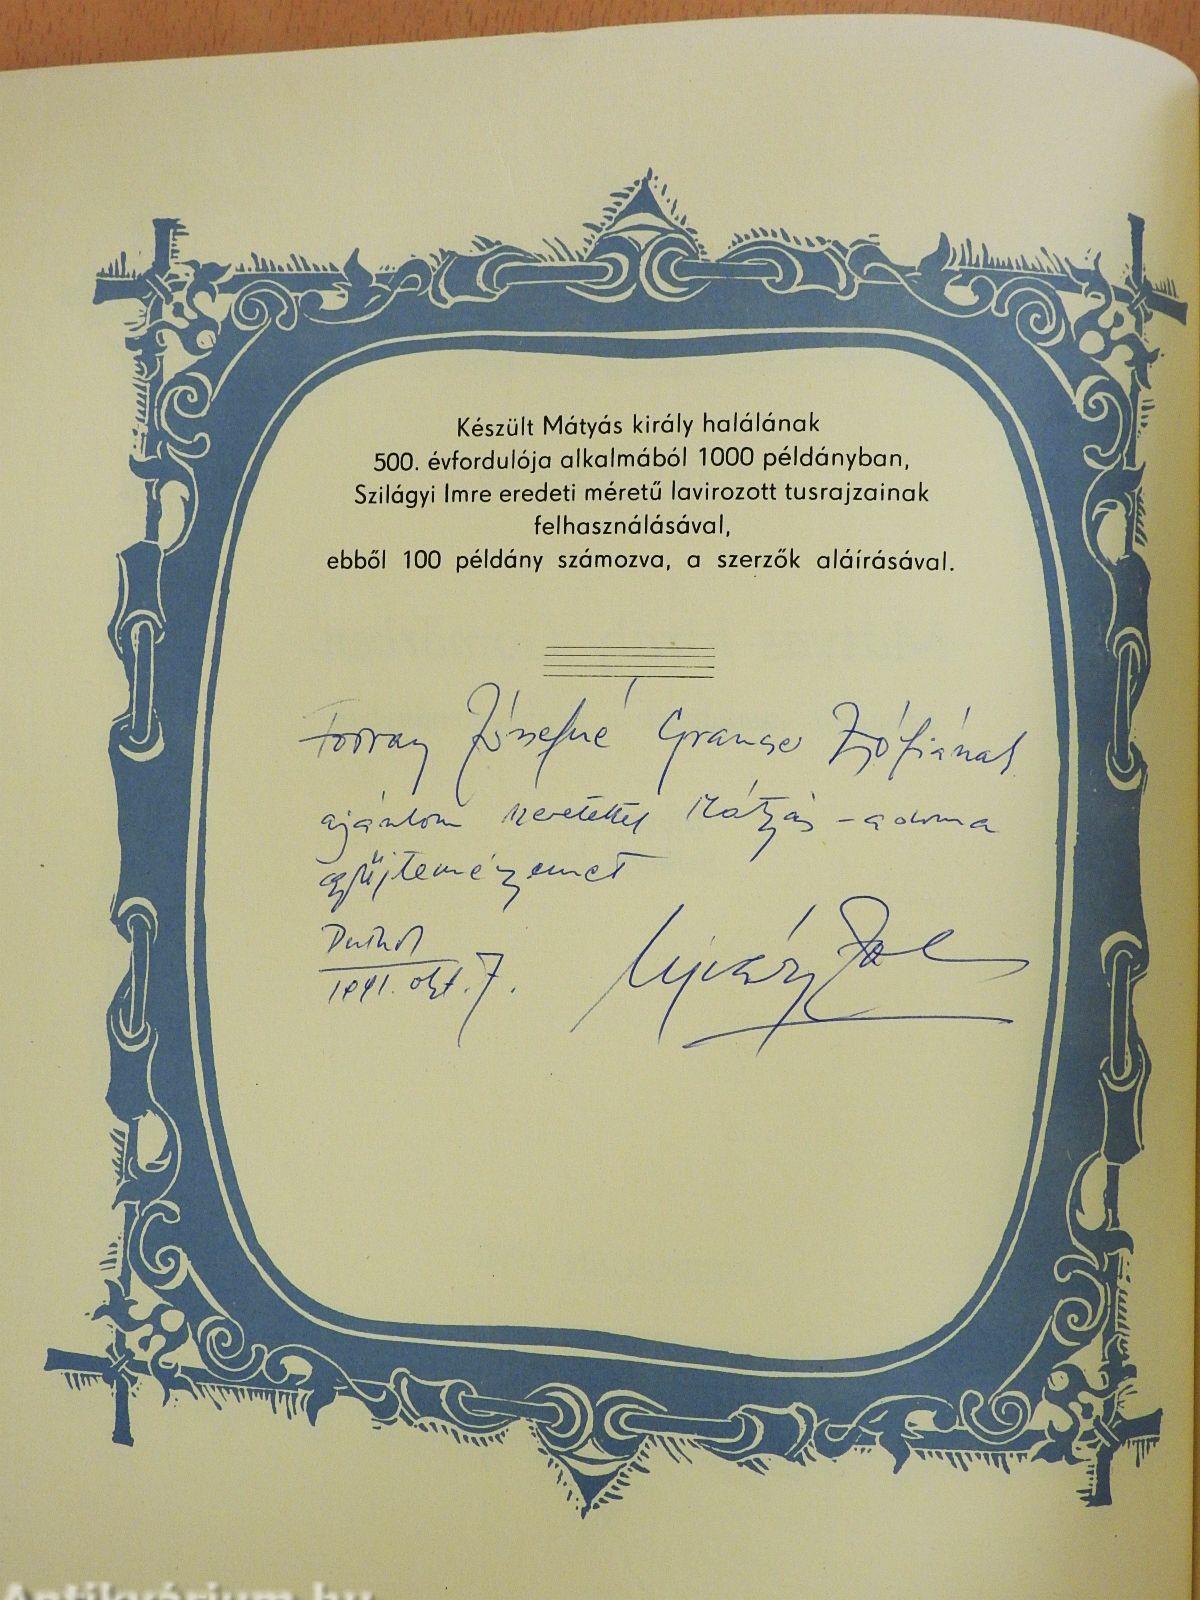 Készült Mátyás király halálának
500. évfordulója alkalmából 1000 példányban,
Szilágyi Imre eredeti méretű lavirozott tusrajzainak
felhasználásával,
ebből 100 példány számozva, a szerzők aláírásával.
Józsefné Zsófiának
ajánlom szeretettel Mátyás-adoma
gyűjteményemet
1991. okt. 7.
Ujváry Zoltán
Antikvárium.hu